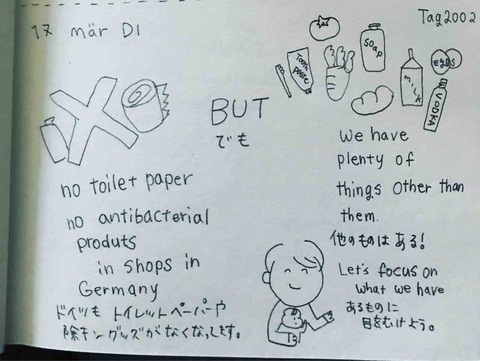 17 mär DI
Tag2002
Tomato
Tooth
paste
Soap
Milk
Eggs
VODKA
BUT
でも
no toilet paper
no antibacterial
produts
in shops in
Germany
ドイツも トイレットペーパーや
除キングッズがなくなってます。
We have
plenty of
things other than
them.
他のものは ある!
Let's focus on
what we have
あるものに
目をむけよう。